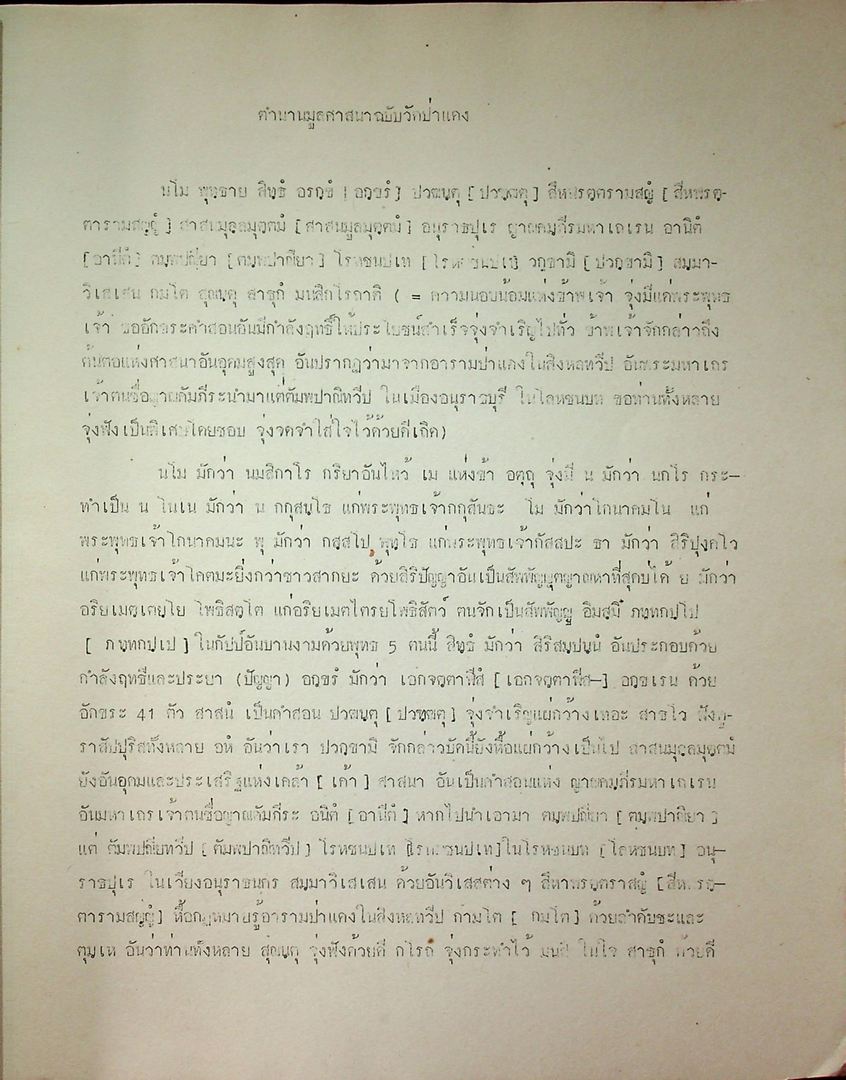 ตำนานมูลศาสนาฉบับวัดป่าแดง
นโม พุทฺธาย สิทฺธํ อรกฺขํ [ อกฺขรํ ] ปวฒฺนฺตุ [ ปวฑฺฒตุ ] สีหฬรตฺตรามสญํ [ สีหฬรตฺ-
ตารามสญฺญํ ] สาสนมุลฺลมุตฺตมํ [ สาสนมูลมุตฺตมํ ] อนุราธปุเร ญาณคมฺภีรมหาเถเรน อานิตํ
[อานีตํ] ตมฺพปณฺณิยา [ตมฺพปาณิยา] โรหชนปเท [โรหชนปเท] วกฺขามิ [ปวกฺขามิ] สมฺมา-
วิเสเสน กมโต สุณนฺตุ สาธุกํ มนสิกโรถาติ ( = ความนอบน้อมแห่งข้าพเจ้า จุ่งมีแด่พระพุทธ
เจ้า ขออักขระคำสอนอันมีกำลังฤทธิ์ให้ประโยชน์สำเร็จจุ่งจำเริญไปทั่ว ข้าพเจ้าจักกล่าวถึง
ต้นตอแห่งศาสนาอันอุดมสูงสุด อันปรากฏว่ามาจากอารามป่าแดงในสิงหลทวีป อันพระมหาเถร
เจ้าตนชื่อญาณคัมภีระนำมาแต่ตัมพปาณิทวีป ในเมืองอนุราธบุรี ในโลหชนบท ขอท่านทั้งหลาย
จุ่งฟังเป็นพิเศษโดยชอบ จุ่งจดจำใส่ใจไว้ด้วยดีเถิด)
นโม มักว่า นมสิกาโร กริยาอันไหว้ เม แห่งข้า อตฺถุ จุ่งมี น มักว่า นกโร กระ-
ทำเป็น น โนเน มักว่า น กกุสนฺโธ แก่พระพุทธเจ้ากกุสันธะ โม มักว่าโกนาคมโน แก่
พระพุทธเจ้าโกนาคมนะ พุ มักว่า กสฺสโป พุทฺโธ แก่พระพุทธเจ้ากัสสปะ ธา มักว่า สิริปุงคโว
แก่พระพุทธเจ้าโคตมะยิ่งกว่าชาวสากยะ ด้วยสิริปัญญาอันเป็นสัพพัญญุตญาณหาที่สุดบ่ได้ ย มักว่า
อริยเมตฺเตยฺโย โพธิสตฺโต แก่อริยเมตไตรยโพธิสัตว์ ตนจักเป็นสัพพัญญู อิมสฺมึ ภทฺทกปฺโป
[ ภทฺทกปฺเป ] ในกัปป์อันบานงามด้วยพุทธ 5 ตนนี้ สิทฺธํ มักว่า สิริสมฺปนฺนํ อันประกอบด้วย
กำลังฤทธีและประยา (ปัญญา) อกฺขรํ มักว่า เอกจตฺตาฬีสํ [เอกจตฺตาฬีส-] อกฺขเรน ด้วย
อักขระ 41 ตัว สาสนํ เป็นคำสอน ปวฒนฺตุ [ปวฑฺฒตุ] จุ่งจำเริญแผ่กว้างเทอะ สาธโว ฟังดู-
ราสัปปุริสทั้งหลาย อหํ อันว่าเรา ปวกฺขามิ จักกล่าวบัดนี้ยังหื้อแผ่กว้างเป็นไป สาสนมุลฺลมุตฺตมํ
ยังอันอุดมและประเสริฐแห่งเคล้า [ เค้า ] ศาสนา อันเป็นคำสอนแห่ง ญาณคมฺภีรมหาเถเรน
อันมหาเถรเจ้าตนชื่อญาณคัมภีระ อนิตํ [อานีตํ] หากไปนำเอามา ตมฺพปณฺณิยา [ตมฺพปาณิยา ]
แต่ ตัมพปณฺณิยทวีป [ตัมพปาณิทวีป ] โรหชนปเท [โรหชนปเท] ในโรหชนบท [โลหชนบท] อนุ-
ราธปุเร ในเวียงอนุราธนคร สมฺมาวิเสเสน ด้วยอันวิเสสต่าง ๆ สีหาฬรตฺตราสญํ [สีหฬรตฺ-
ตารามสญฺญํ] หื้อกฏหมายรู้อารามป่าแดงในสิงหลทวีป กามโต [ กมโต ] ด้วยลำดับชะและ
ตุมฺเห อันว่าท่านทั้งหลาย สุณนฺตุ จุ่งฟังด้วยดี กโรถ จุ่งกระทำไว้ มนสิ ในใจ สาธุกํ ด้วยดี